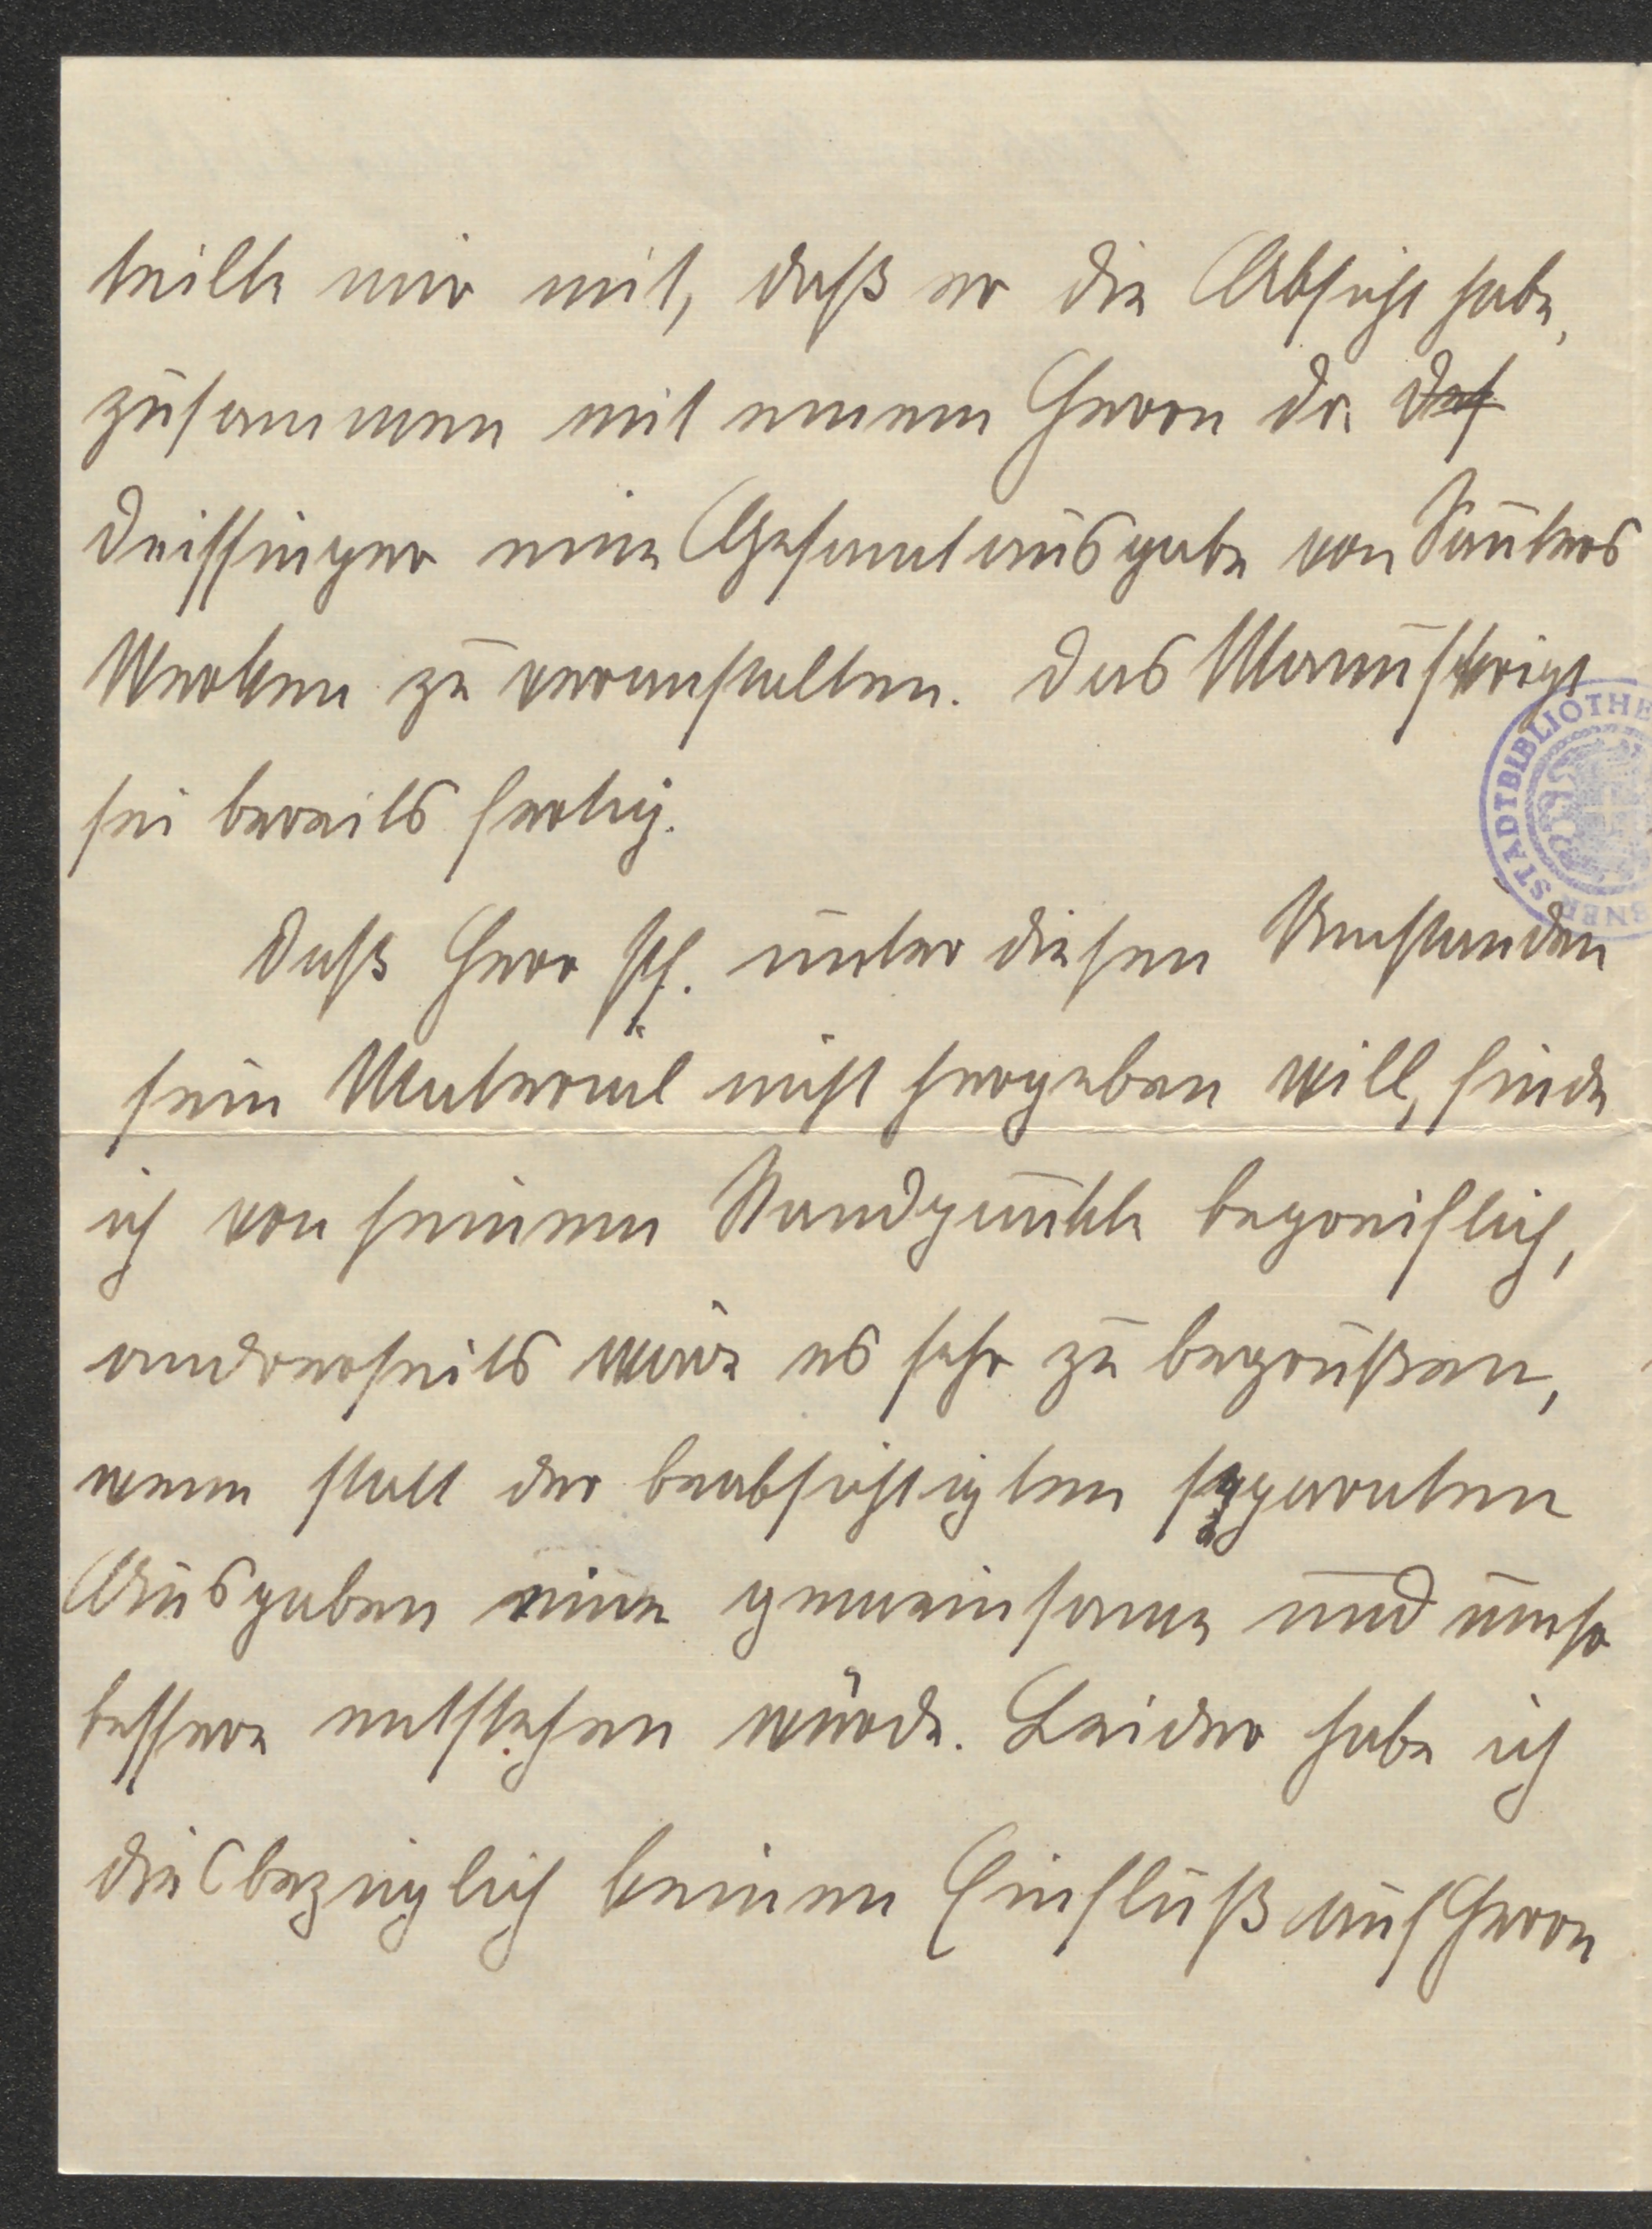 teilte mir mit, daß er die Absicht habe,
zusammen mit einem Herrn Dr.
Deissinger eine Gesamtausgabe von Sauters
Werken zu veranstalten. Das Manuskript
sei bereits fertig.
Daß Herr Pf. unter diesen Umständen
sein Material nicht hergeben will, finde
ich von seinem Standpunkte begreiflich,
andrerseits wäre es sehr zu begrüßen,
wenn statt der beabsichtigten separaten
Ausgaben eine gemeinsame und umso
bessere entstehen würde. Leider habe ich
diesbezüglich keinen Einfluß auf Herrn
STADTBIBLIOTHE